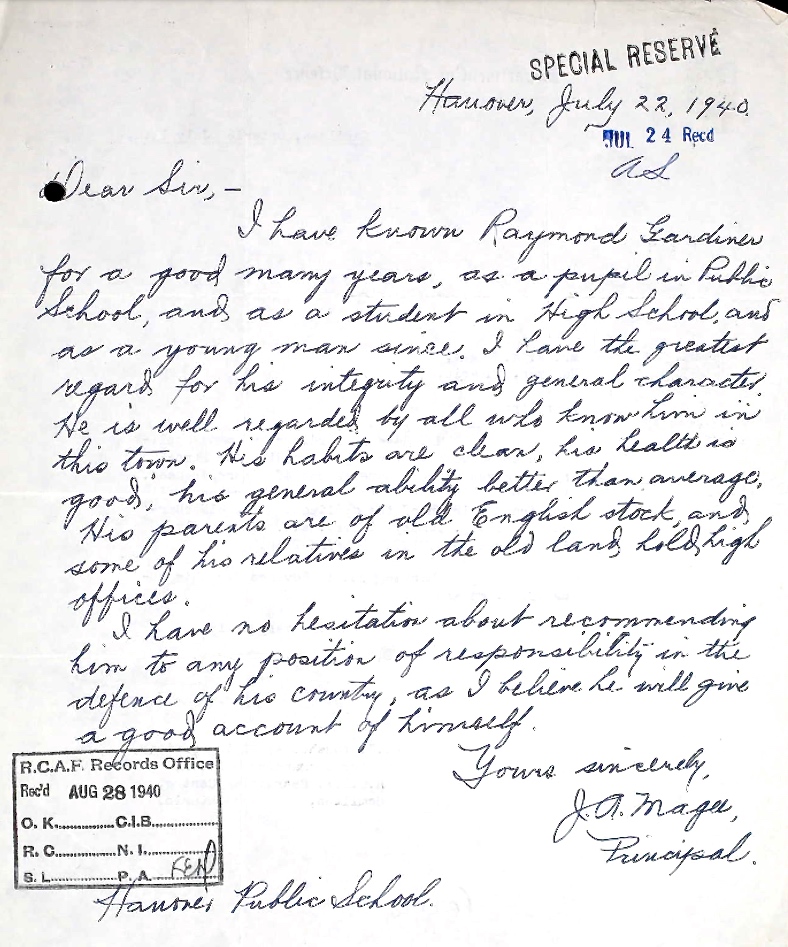 SPECIAL RESERVE
Hanover, July 22, 1940.
JUL 24 Recd
AS
Dear Sir,-
I have known Raymond Gardiner
for a good many years, as a pupil in Public
School, and as a student in High School, and
as a young man since. I have the greatest
regard for his integrity and general character.
He is well regarded by all who know him in
this town. His habits are clean, his health is
good, his general ability better than average.
His parents are of old English stock, and
some of his relatives in the old land hold high
offices.
I have no hesitation about recommending
him to any position of responsibility in the
defence of his country, as I believe he will give
a good account of himself.
Yours sincerely,
J. A. Magee,
Principal.
R.C.A.F. Records Office
Rec'd AUG 28 1940
O. K. C.I.B.
R. C. N. I.
S. L. P. A.
Hanover Public School.